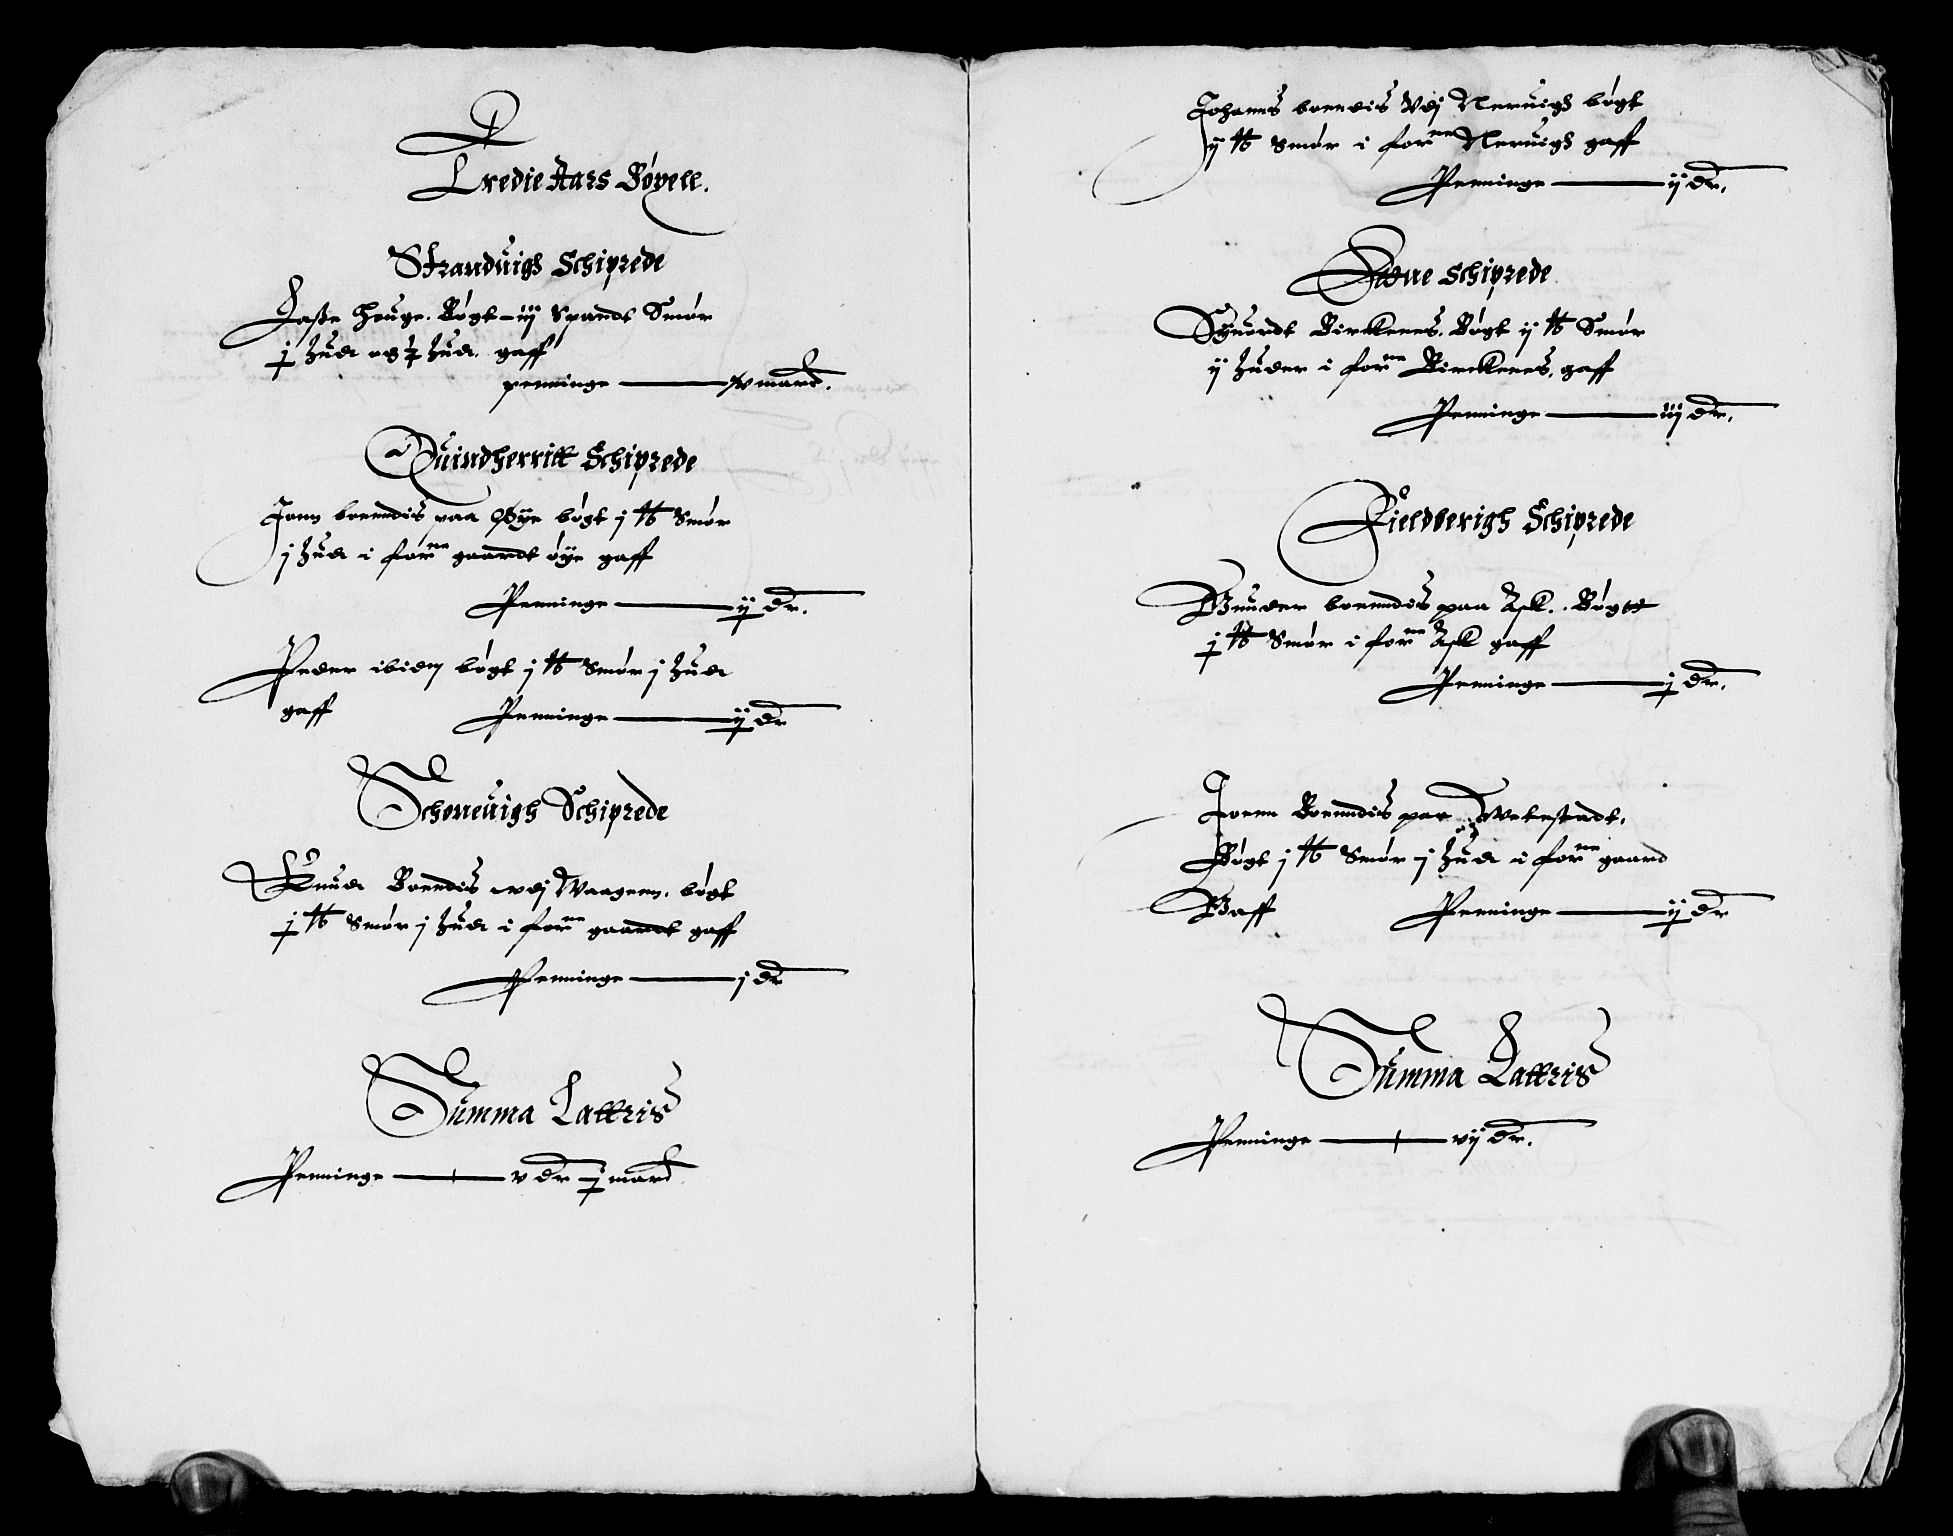 Tredie Aars Bøxell.
Strandvigs Schiprede
Laße Houge. Bøgt iij Spandt Smør
j hud og ½ hud. gaff
penninge v march.
Quindherritt Schiprede
Jonn boendis paa Øye bøgt j ℔ Smør
j hud i forne gaardt øye gaff
Penninge ij dr.
Peder ibidem bøgt j ℔ Smør j hud
gaff Penninge ij dr
Schoneuigh Schiprede
Knud Boendis ved Waagenn. bøgt
j ℔ Smør j hud i forne gaardt gaff
Penninge j dr
Summa Latteris
Penninge v dr j march
Johanns boendis Ved Neruigs bøgt
ij ℔ Smør i forne Neruigs gaff
Penninge ij dr.
Etne schiprede
Syuordt Birckenes. Bøgt ij ℔ Smør
ij huder i forne Birckenes. gaff
Penninge iij dr.
Fieldberigh Schiprede
Gunder boendis paa Ask. Bøgtt
j ℔ Smør i forne Ask gaff
Penninge j dr.
Joenn Boendis paa Wetestadt.
Bøgt j ℔ Smør j hud i forne gaard
Gaff Penninge ij dr
Summa Latteris
Penninge vij dr.